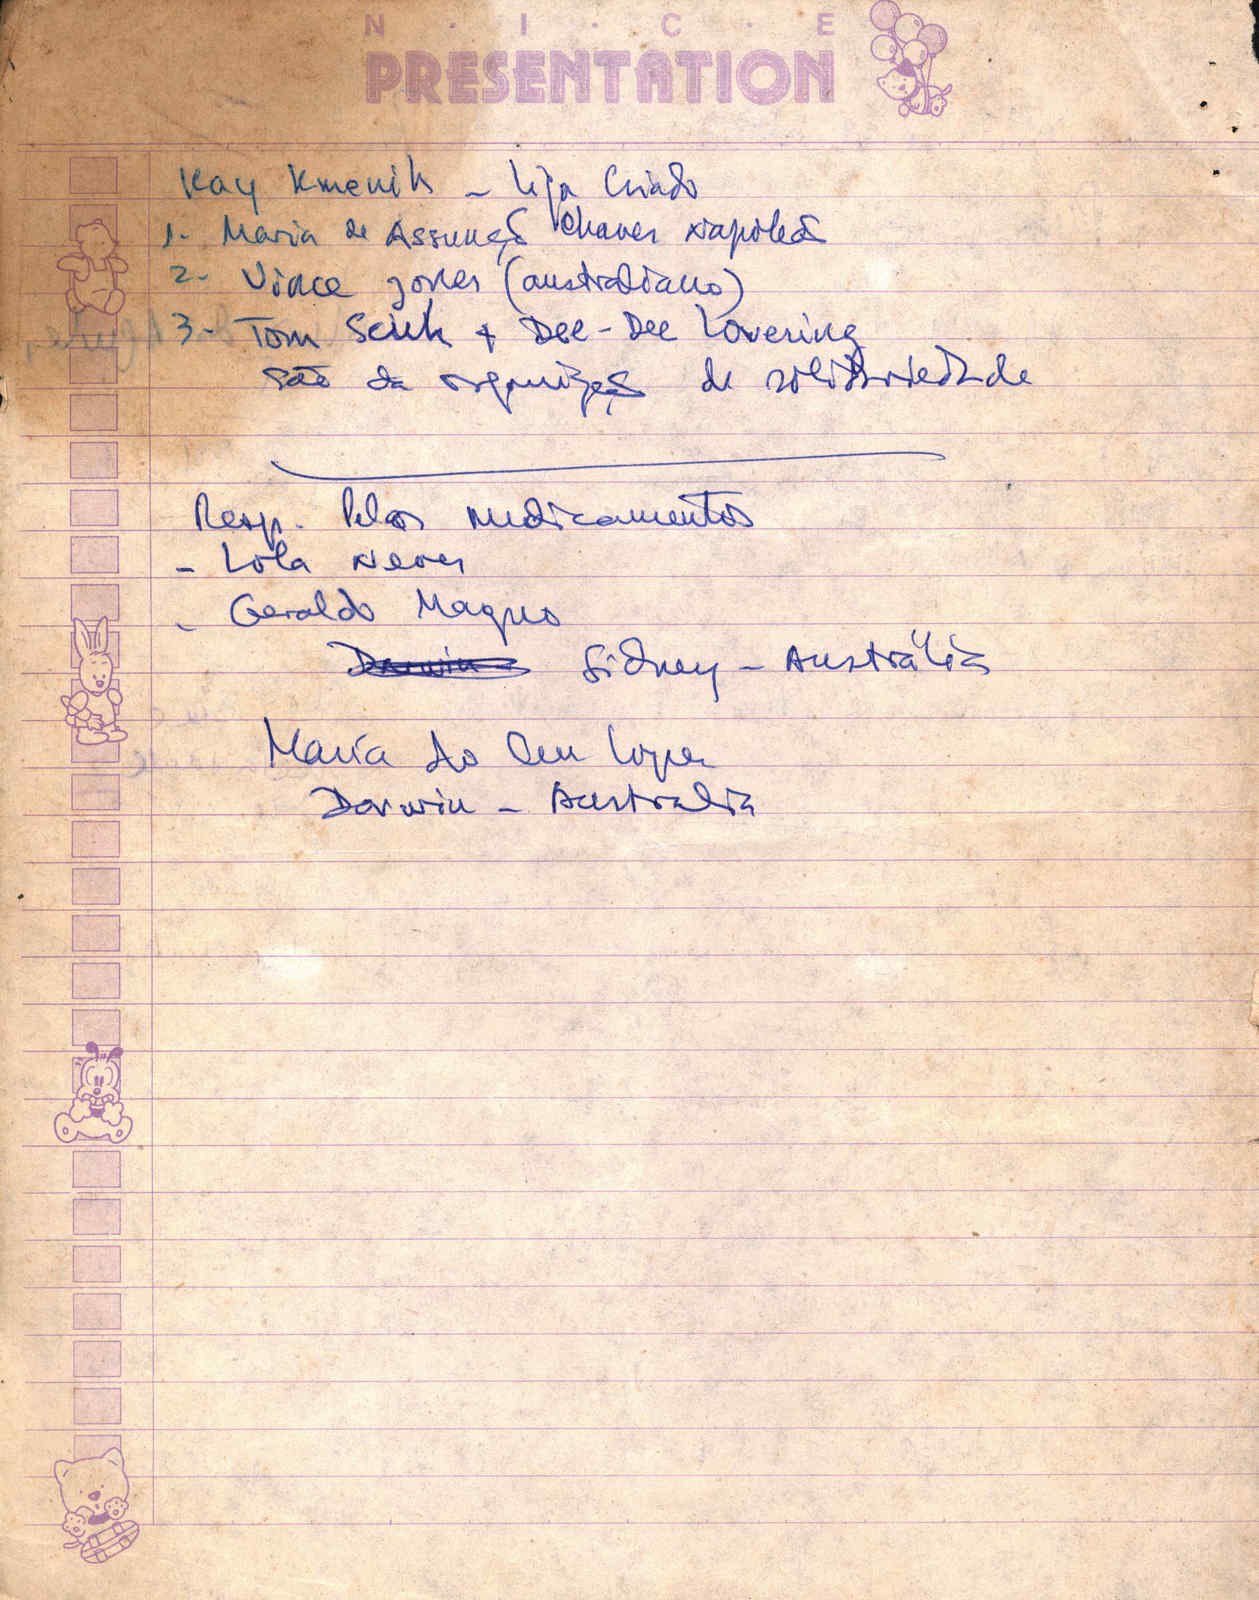 N · I · C · E
PRESENTATION
Kay Kmenik - Liga Criado
1- Maria de Assunção Chaves Napoleão
2- Vince Jones (australiano)
3- Tom + Dee-Dee Lovering
são da organização de solidariedade
Resp. Pelos medicamentos
- Lola Neves
- Geraldo Magno
Darwin Sidney - Austrália
Maria do Céu Lopes
Darwin - Australia